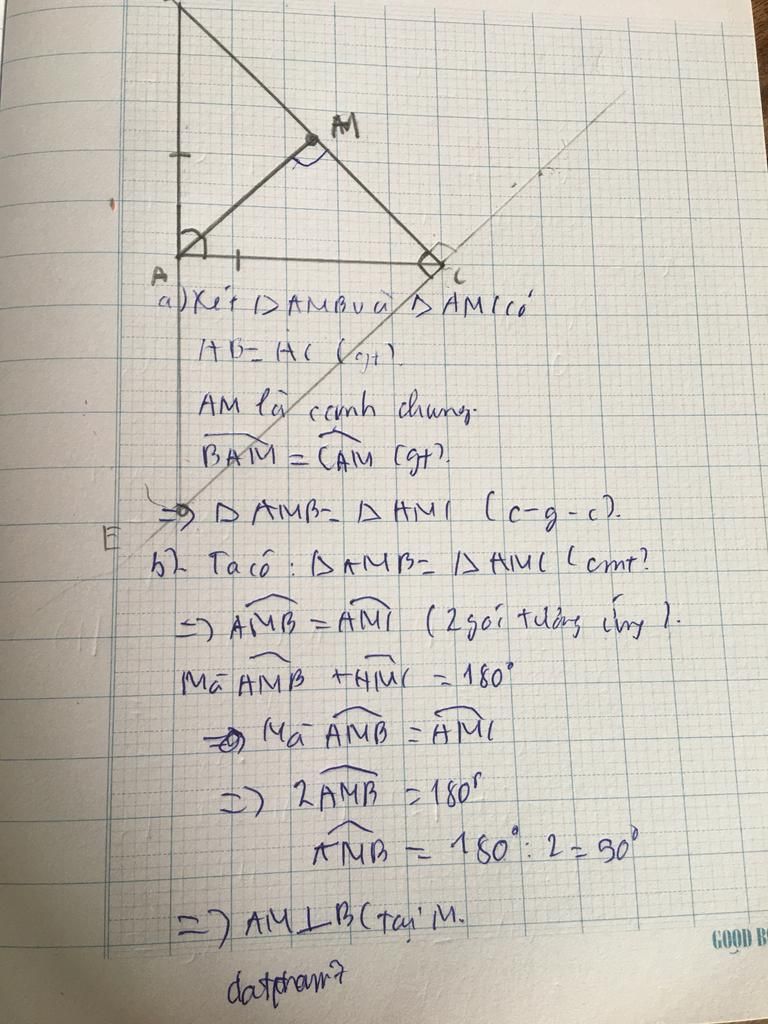 M
A
C
a) Xét Δ AMB và Δ AMC có
AB = AC (gt).
AM là cạnh chung.
BAM = CAM (gt).
=> Δ AMB = Δ AMC (c-g-c).
E
b) Ta có : Δ AMB = Δ AMC (cmt)
=> AMB = AMC (2 gói tương ứng).
Mà AMB + AMC = 180°
=> Mà AMB = AMC
=> 2AMB = 180°
AMB = 180° : 2 = 90°
=> AM ⊥ BC tại M.
GOOD B
datpham7